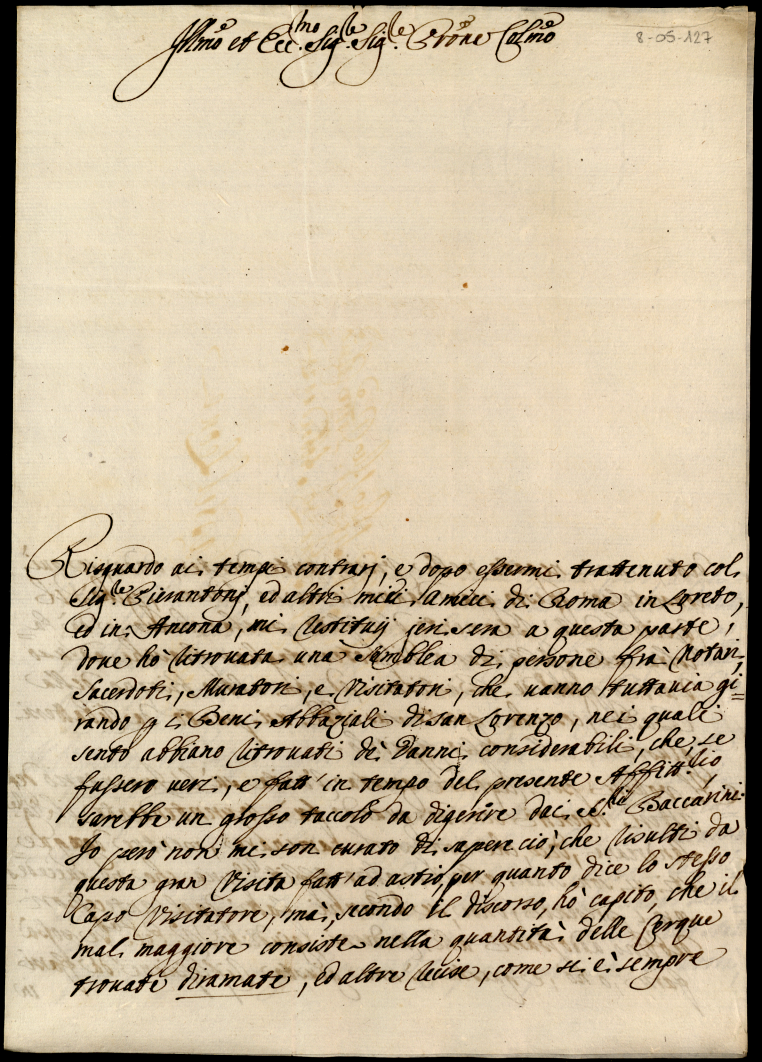 Illmo et Ecc.mo Sig.re Sig.re Prone Colmo
8-05-127
Risguardo ai tempi contrarj, e dopo essermi trattenuto col
Sig.re Pierantonj, ed altri miei Amici di Roma in Loreto,
ed in Ancona, mi restituij jeri sera a questa parte,
dove hò ritrovata una Asemblea di persone frà Notari,
Sacerdoti, Muratori, e Visitatori, che vanno tuttavia gi=
rando p i Beni Abbaziali di San Lorenzo, nei quali
sento abbiano ritrovati dè Danni considerabili, che, se
fussero veri, e fatt' in tempo del presente Affitt.o ciò
sarebbe un grosso taccolo da digerire dai SS.ri Baccarini.
Io però non mi son curato di sapere ciò, che risulti da
questa gran Visita fatt' ad astio, per quanto dice lo stesso
Capo Visitatore, mà, secondo il discorso, hò capito, che il
mal maggiore consiste nella quantità delle Cerque
trovate diramate, ed altre recise, come si è sempre